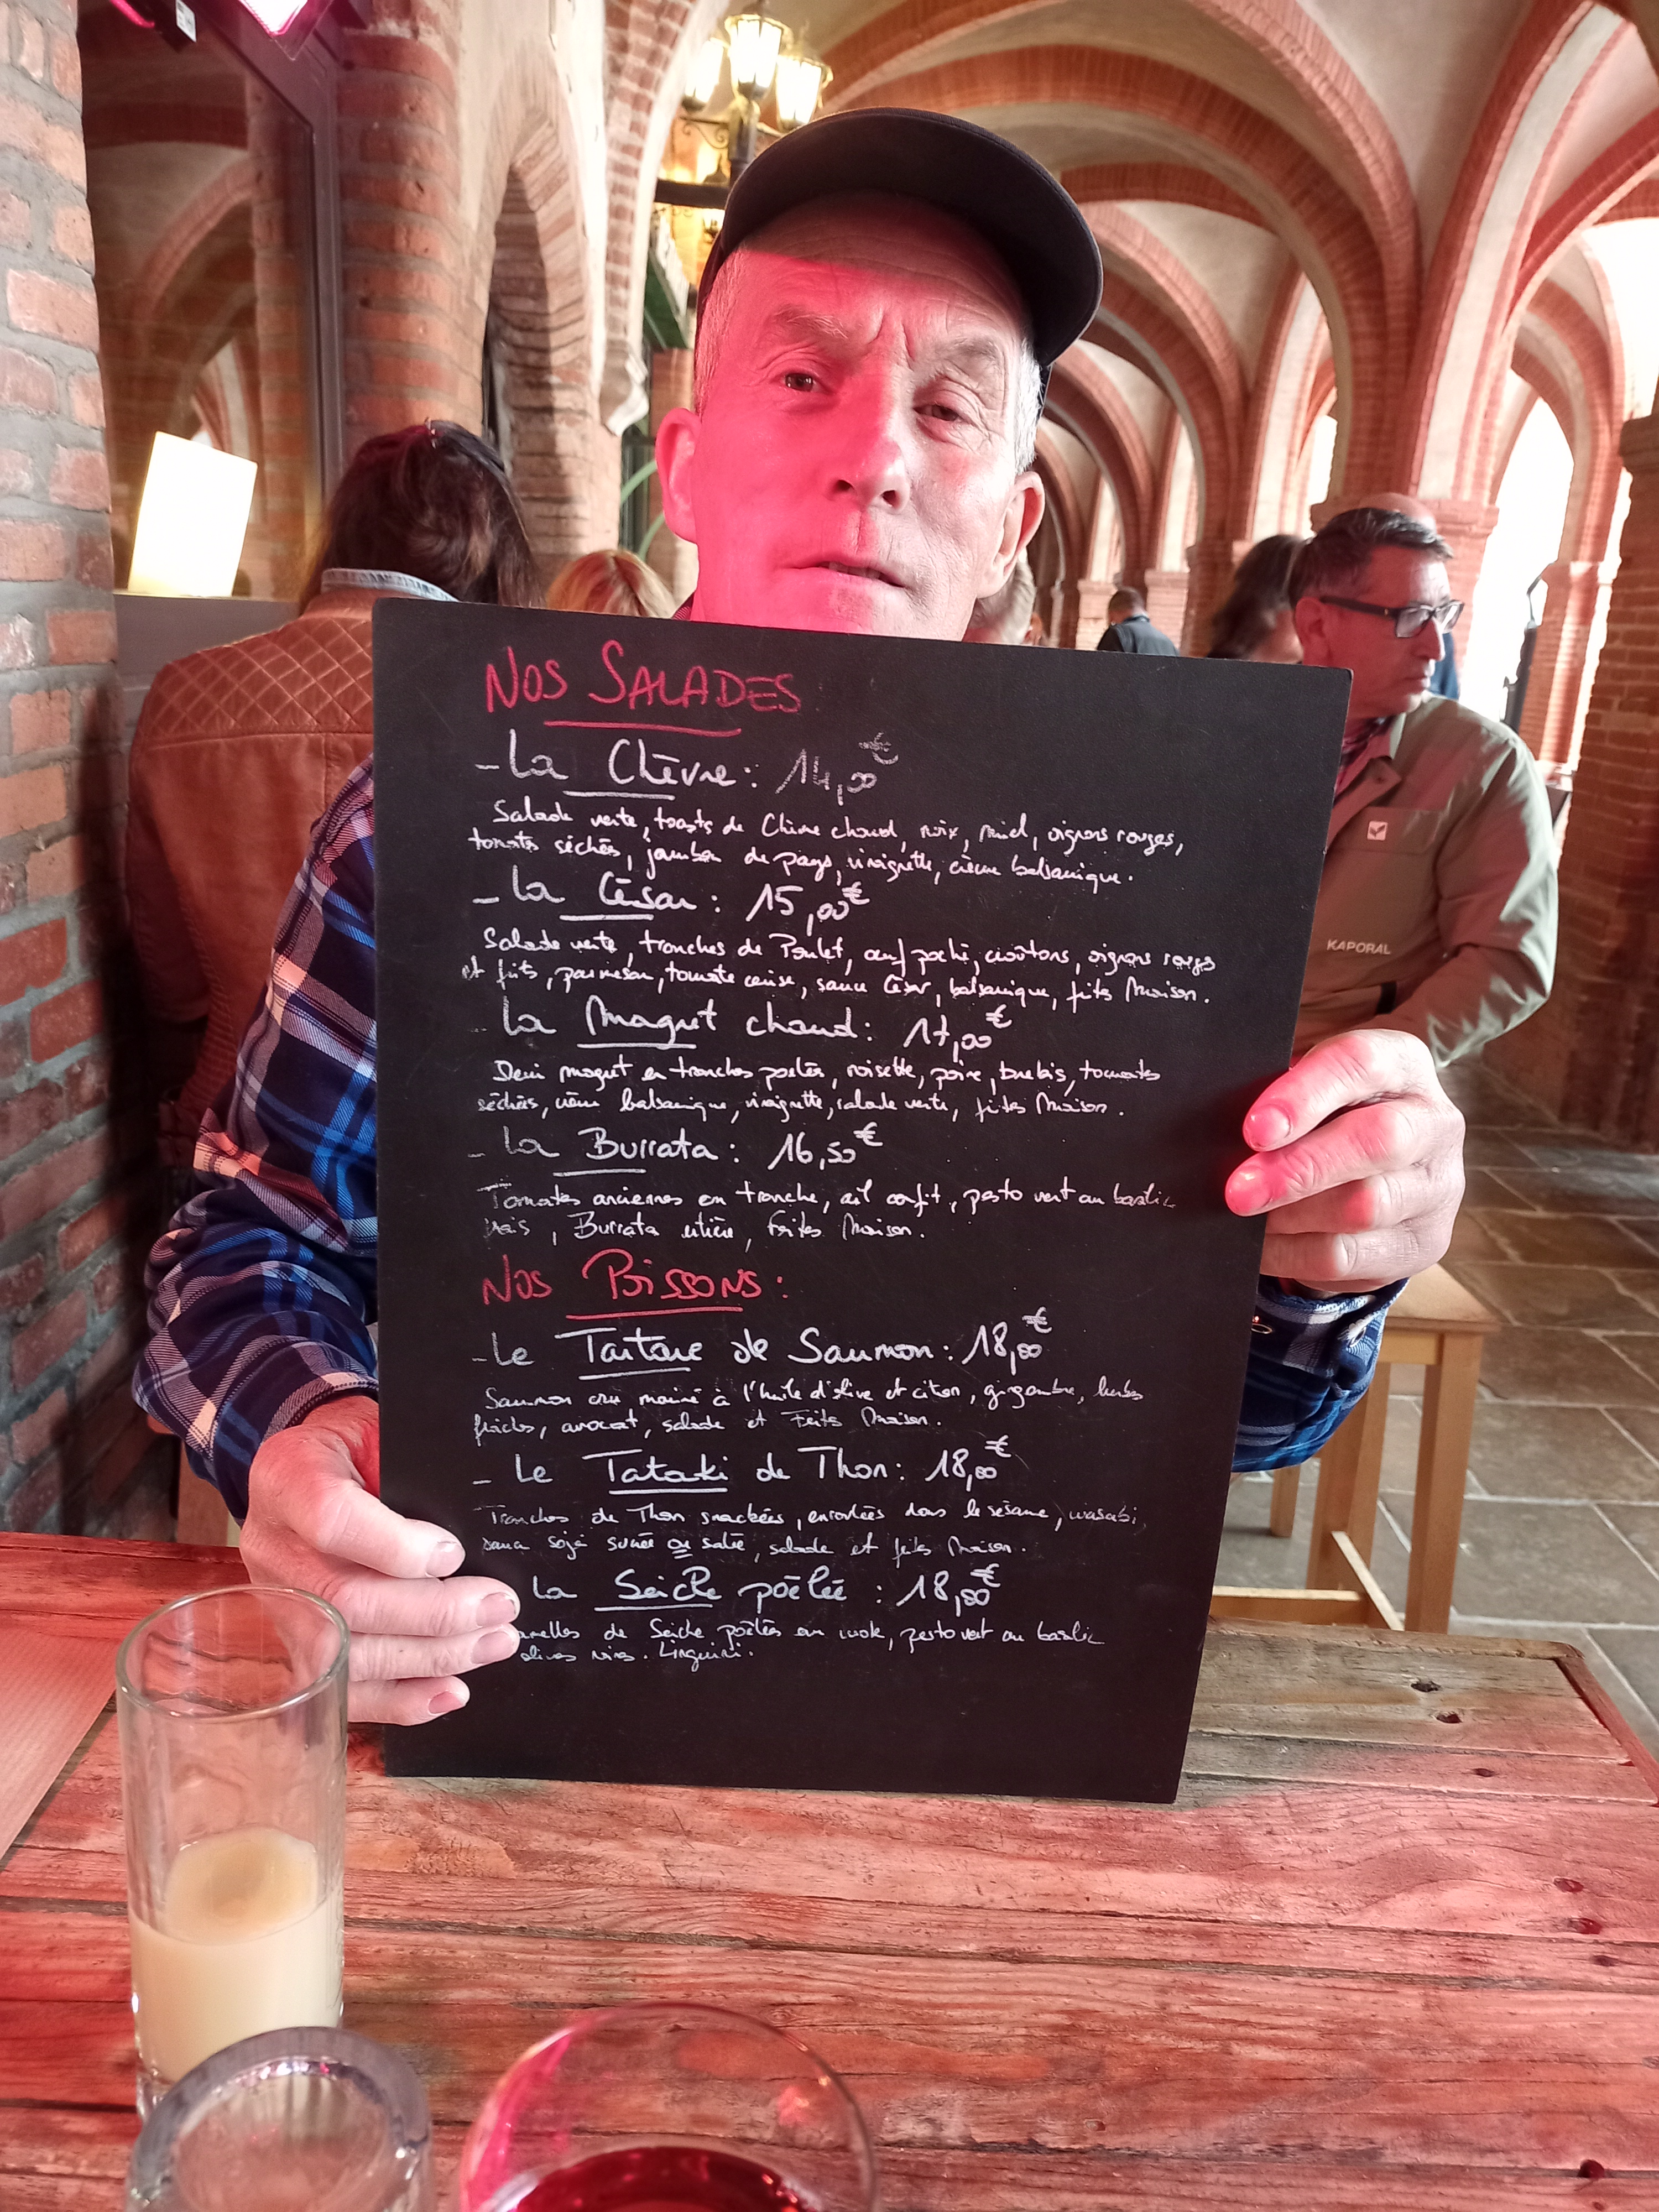 NOS SALADES
- La Chèvre : 14,00€
Salade verte, toasts de Chèvre chaud, noix, miel, oignons rouges,
tomates séchées, jambon de pays, vinaigrette, crème balsamique.
- La César : 15,00€
Salade verte, tranches de Poulet, œuf poché, croûtons, oignons rouges
et frits, parmesan, tomate cerise, sauce César, balsamique, frites Maison.
- La Magret chaud : 17,00€
Demi magret en tranches poêlées, noisette, poire, brebis, tomates
séchées, crème balsamique, vinaigrette, salade verte, frites Maison.
- La Burrata : 16,50€
Tomates anciennes en tranche, ail confit, pesto vert au basilic
frais, Burrata entière, Frites Maison.
NOS POISSONS :
- Le Tartare de Saumon : 18,00€
Saumon cru mariné à l'huile d'olive et citron, gingembre, herbes
fraîches, avocat, salade et Frites Maison.
- Le Tataki de Thon : 18,00€
Tranches de Thon snackées, enroulées dans le sésame, wasabi,
sauce soja sucrée ou salée, salade et frites Maison.
La Seiche poêlée : 18,00€
de Seiche poêlées au wok, pesto vert au basilic
olives noires. Linguini.
KAPORAL